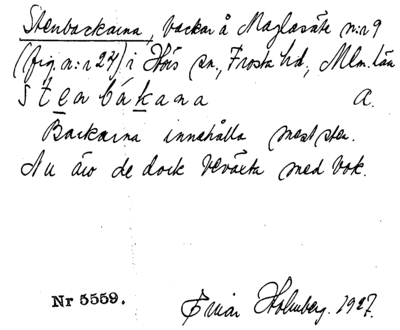 Stenbackarna, backar å Maglasäte n:r 9
(fig. n:r 27) i Hörs sn., Frosta hd, Mlm. län
stenbákana A.
Backarna innehålla mest sten.
Nu äro de dock beväxta med bok.
Nr 5559. Einar Holmberg. 1927.